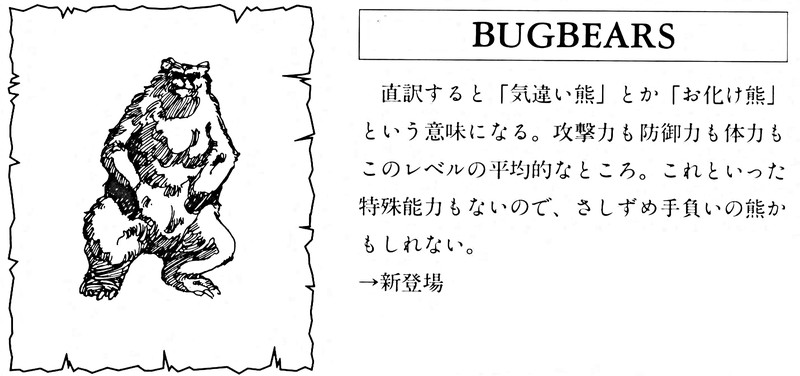 BUGBEARS
直訳すると「気違い熊」とか「お化け熊」
という意味になる。攻撃力も防御力も体力も
このレベルの平均的なところ。これといった
特殊能力もないので、さしずめ手負いの熊か
もしれない。
→新登場